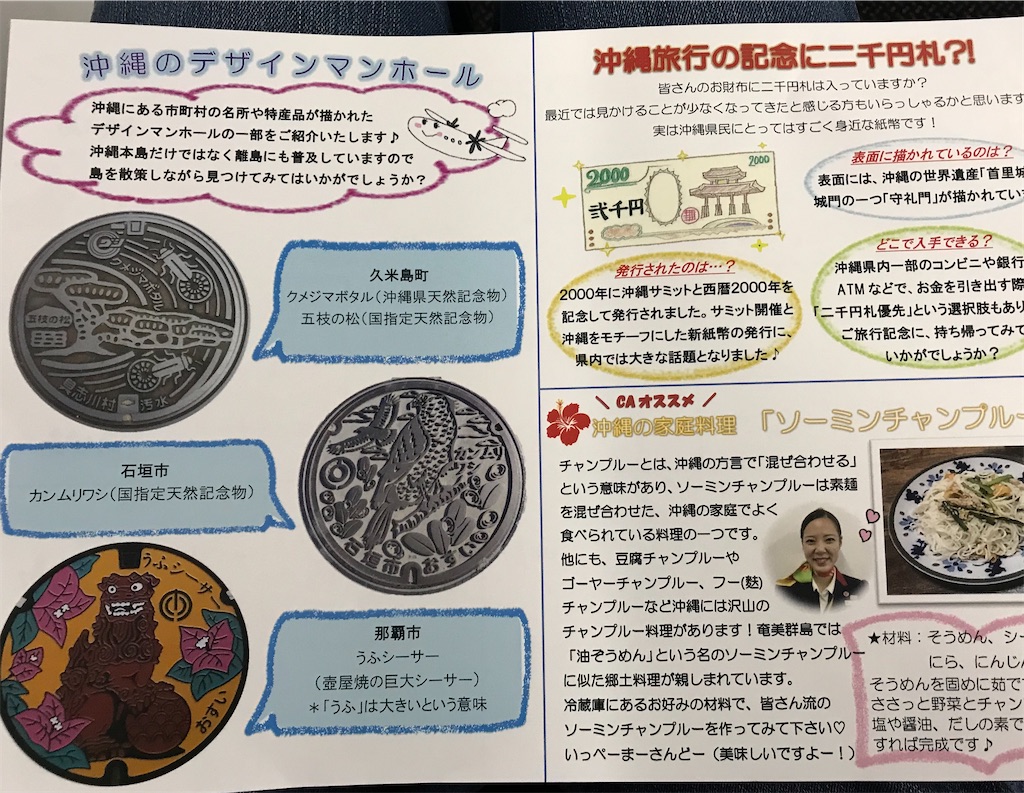 沖縄のデザインマンホール
沖縄にある市町村の名所や特産品が描かれた
デザインマンホールの一部をご紹介いたします♪
沖縄本島だけではなく離島にも普及していますので
島を散策しながら見つけてみてはいかがでしょうか？
クメジマボタル
五枝の松
具志川村
汚水
久米島町
クメジマボタル（沖縄県天然記念物）
五枝の松（国指定天然記念物）
石垣市
カンムリワシ（国指定天然記念物）
石垣市
おすい
うふシーサー
おすい
那覇市
うふシーサー
（壺屋焼の巨大シーサー）
＊「うふ」は大きいという意味
沖縄旅行の記念に二千円札?!
皆さんのお財布に二千円札は入っていますか？
最近では見かけることが少なくなってきたと感じる方もいらっしゃるかと思います
実は沖縄県民にとってはすごく身近な紙幣です！
2000
2000
弐千円
表面に描かれているのは？
表面には、沖縄の世界遺産「首里城
城門の一つ「守礼門」が描かれてい
発行されたのは…？
2000年に沖縄サミットと西暦2000年を
記念して発行されました。サミット開催と
沖縄をモチーフにした新紙幣の発行に、
県内では大きな話題となりました♪
どこで入手できる？
沖縄県内一部のコンビニや銀行
ATMなどで、お金を引き出す際
「二千円札優先」という選択肢もあり
ご旅行記念に、持ち帰ってみて
いかがでしょうか？
＼ CAオススメ ／
沖縄の家庭料理 「ソーミンチャンプルー
チャンプルーとは、沖縄の方言で「混ぜ合わせる」
という意味があり、ソーミンチャンプルーは素麺
を混ぜ合わせた、沖縄の家庭でよく
食べられている料理の一つです。
他にも、豆腐チャンプルーや
ゴーヤーチャンプルー、フー(麩)
チャンプルーなど沖縄には沢山の
チャンプルー料理があります！奄美群島では
「油ぞうめん」という名のソーミンチャンプルー
に似た郷土料理が親しまれています。
冷蔵庫にあるお好みの材料で、皆さん流の
ソーミンチャンプルーを作ってみて下さい♡
いっぺーまーさんどー（美味しいですよー！）
★材料：そうめん、シー
にら、にんじん
そうめんを固めに茹で
ささっと野菜とチャン
塩や醤油、だしの素で
すれば完成です♪